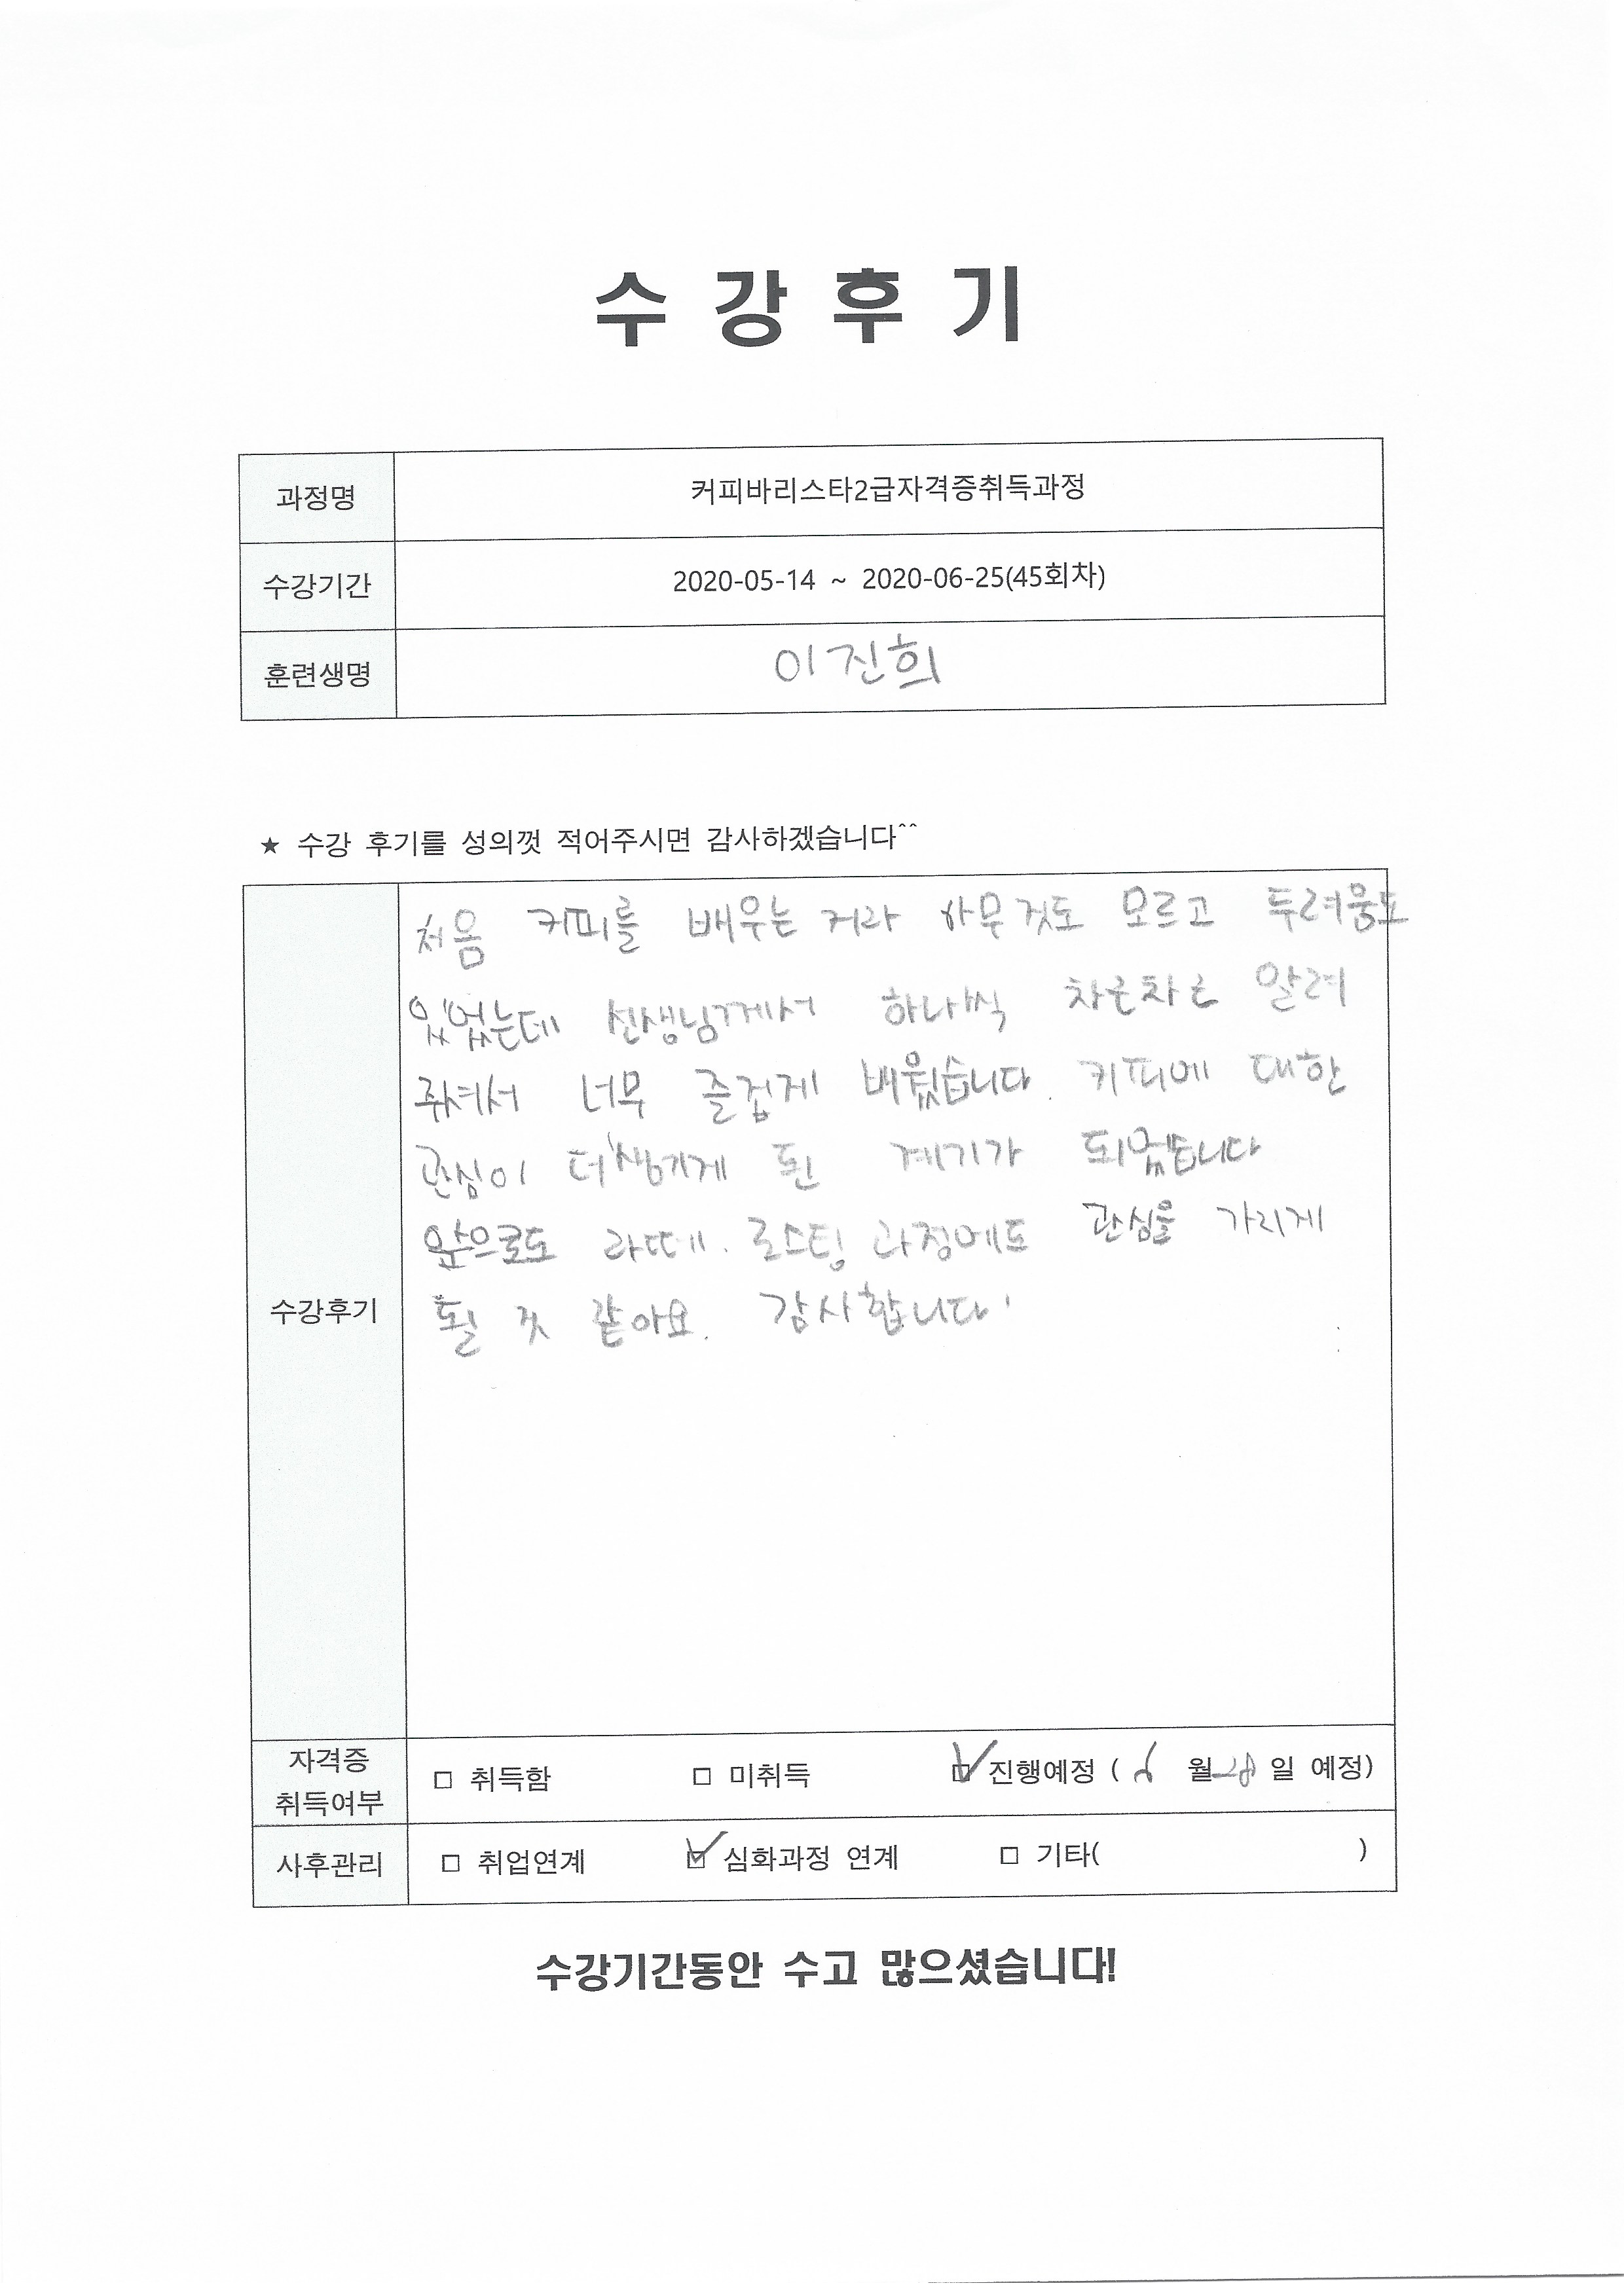 수 강 후 기
과정명 커피바리스타2급자격증취득과정
수강기간 2020-05-14 ~ 2020-06-25(45회차)
훈련생명 이진희
★ 수강 후기를 성의껏 적어주시면 감사하겠습니다^^
처음 커피를 배우는 거라 아무것도 모르고 두려움도
있었는데 선생님께서 하나씩 차근차근 알려
줘서 너무 즐겁게 배웠습니다. 커피에 대한
관심이 더 생기게 된 계기가 되었습니다
앞으로도 라떼. 로스팅 과정에도 관심을 가지게
될 것 같아요. 감사합니다!
수강후기
자격증
취득여부 □ 취득함 □ 미취득 ☑ 진행예정 ( 6 월 28 일 예정)
사후관리 □ 취업연계 ☑ 심화과정 연계 □ 기타( )
수강기간동안 수고 많으셨습니다!